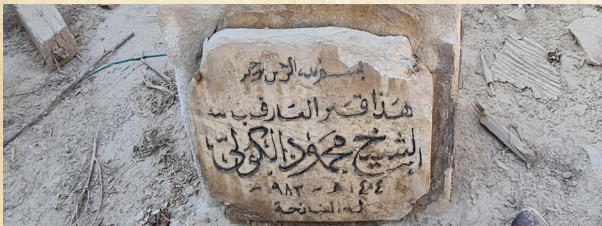 بسم الله الرحمن الرحيم
هذا قبر العارف بالله
الشيخ محمود الكولي
١٤٠٤ هـ - ٩٨٣ -
له الفاتحة